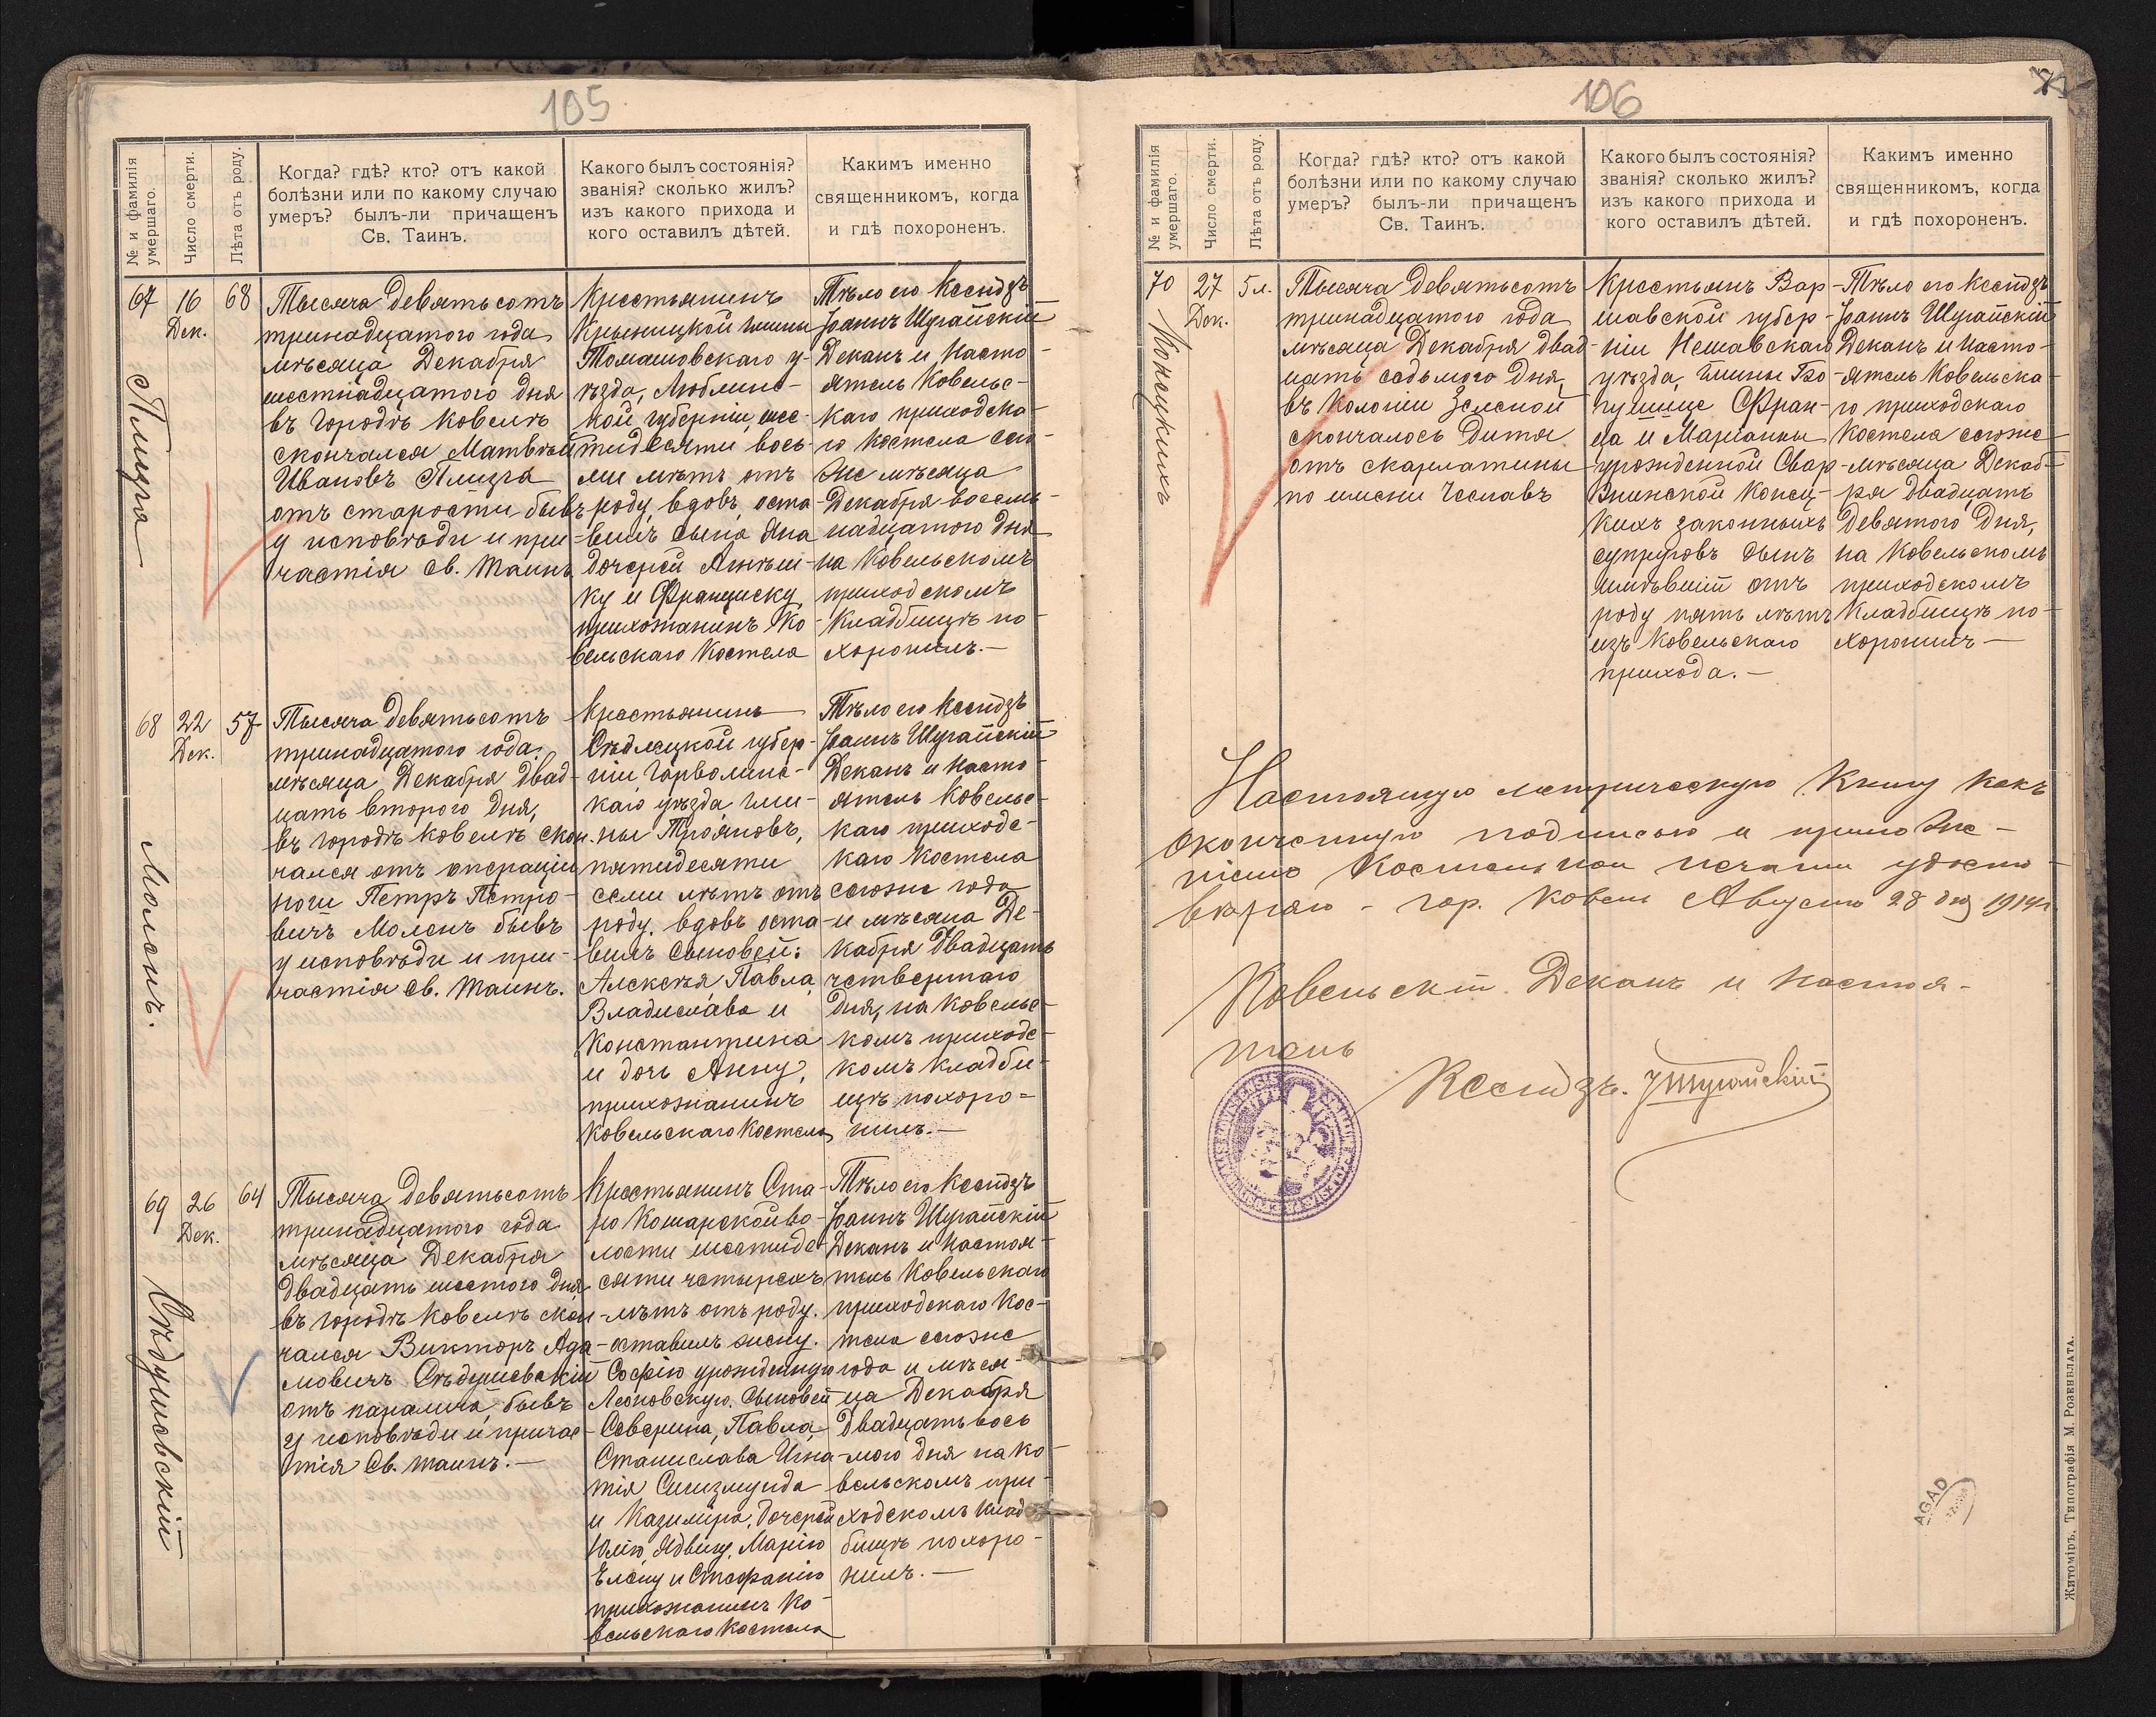 105
№ и фамилія умершаго.
Число смерти.
Лѣта отъ роду.
Когда? гдѣ? кто? отъ какой
болѣзни или по какому случаю
умеръ? былъ-ли причащенъ
Св. Таинъ.
Какого былъ состоянія?
званія? сколько жилъ?
изъ какого прихода и
кого оставилъ дѣтей.
Какимъ именно
священникомъ, когда
и гдѣ похороненъ.
67
16
Дек.
68
Плизга
Тысяча девятьсотъ
тринадцатого года
мѣсяца Декабря
шестнадцатого дня
въ городѣ Ковелѣ
скончался Матвѣй
Ивановъ Плизга
отъ старости бывъ
у исповѣди и при-
частія св. таинъ
Крестьянинъ
Крыницкой гмины
Томашовскаго у-
ѣзда, Люблинс-
кой губерніи, шес-
тидесяти вось-
ми лѣтъ отъ
роду, вдовъ, оста-
вилъ сына Яна
дочерей Агнѣш-
ку и Франциску
прихожанинъ Ко-
вельскаго Костела
Тѣло его Ксендзъ
Іоаннъ Шугайскій
Деканъ и Насто-
ятель Ковельс-
каго приходска-
го Костела сего-
же мѣсяца
Декабря восем-
надцатого дня
на Ковельскомъ
приходскомъ
Кладбищѣ по-
хоронилъ.—
68
22
Дек.
57
Моленъ.
Тысяча девятьсотъ
тринадцатого года
мѣсяца Декабря двад-
цать второго дня,
въ городѣ Ковелѣ скон-
чался отъ операціи
ноги Петръ Петро-
вичъ Моленъ бывъ
у исповѣди и при-
частія св. таинъ.
Крестьянинъ
Сѣдлецкой губер-
ніи Гарволинс-
каго уѣзда гми-
ны Трояновъ,
пятидесяти
семи лѣтъ отъ
роду, вдовъ оста-
вилъ сыновей:
Алексѣя Павла
Владислава и
Константина
и дочь Анну,
прихожанинъ
Ковельскаго Костела
Тѣло его Ксендзъ
Іоаннъ Шугайскій
Деканъ и Насто-
ятель Ковельс-
каго приходс-
каго Костела
сегоже года
и мѣсяца Де-
кабря двадцать
четвертаго
дня, на Ковельс-
комъ приходс-
комъ кладби-
щѣ похоро-
нилъ.—
69
26
Дек.
64
Сѣдушевскій
Тысяча девятьсотъ
тринадцатого года
мѣсяца Декабря
двадцать шестого дня
въ городѣ Ковелѣ скон-
чался Викторъ Ада-
мовичъ Сѣдушевскій
отъ паралича, бывъ
у исповѣди и причас-
тія св. таинъ.—
Крестьянинъ Ста-
ро Кошарской во-
лости шестиде-
сяти четырехъ
лѣтъ отъ роду.
оставилъ жену
Софію урожденную
Леоновскую. Сыновей
Северина, Павла,
Станислава Игна-
тія Сигизмунда
и Казиміра, дочерей
Юлію, Ядвигу, Марію
Елену и Стефанію
прихожанинъ Ко-
вельскаго Костела
Тѣло его Ксендзъ
Іоаннъ Шугайскій
Деканъ и Настоя-
тель Ковельскаго
приходскаго Кос-
тела сегоже
года и мѣся-
ца Декабря
двадцать вось
мого дня на Ко-
вельскомъ при-
ходскомъ Клад
бищѣ похоро-
нилъ.—
106
№ и фамилія умершаго.
Число смерти.
Лѣта отъ роду.
Когда? гдѣ? кто? отъ какой
болѣзни или по какому случаю
умеръ? былъ-ли причащенъ
Св. Таинъ.
Какого былъ состоянія?
званія? сколько жилъ?
изъ какого прихода и
кого оставилъ дѣтей.
Какимъ именно
священникомъ, когда
и гдѣ похороненъ.
70
27
Дек.
5 л.
Конецкихъ
Тысяча девятьсотъ
тринадцатого года
мѣсяца Декабря двад-
цать седьмого дня,
въ Колоніи Зеленой
скончалось дитя
отъ скарлатины
по имени Чеславъ
Крестьянъ Вар-
шавской губер-
ніи Нешавскаго
уѣзда, гмины
Фран-
ца и Маріанны
урожденной
Конец-
кихъ законныхъ
супруговъ сынъ
имѣвшій отъ
роду пять лѣтъ
изъ Ковельскаго
прихода.—
Тѣло его Ксендзъ
Іоаннъ Шугайскій
Деканъ и Насто-
ятель Ковельска-
го приходскаго
Костела сегоже
мѣсяца Декаб-
ря двадцать
девятого дня,
на Ковельскомъ
приходскомъ
Кладбищѣ по-
хоронилъ—
Настоящую метрическую Книгу какъ
оконченную подписью и приложе-
ніемъ Костельной печати удосто-
веряю - гор. Ковель Августа 28 дня 1914 г
Ковельскій Деканъ и настоя-
тель
Ксендзъ. ІШугайскій
AGAD
Житоміръ. Типографія М. Розенблата.